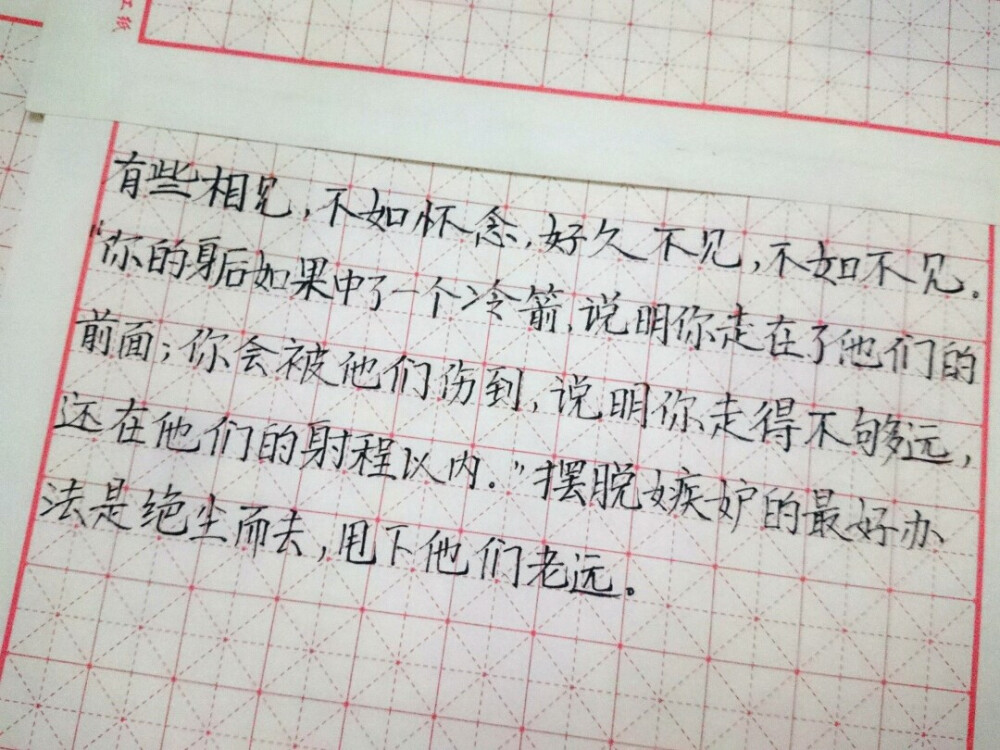 有些相见,不如怀念,好久不见,不如不见。
"你的身后如果中了一个冷箭,说明你走在了他们的
前面;你会被他们伤到,说明你走得不够远,
还在他们的射程以内。"摆脱嫉妒的最好办
法是绝尘而去,甩下他们老远。